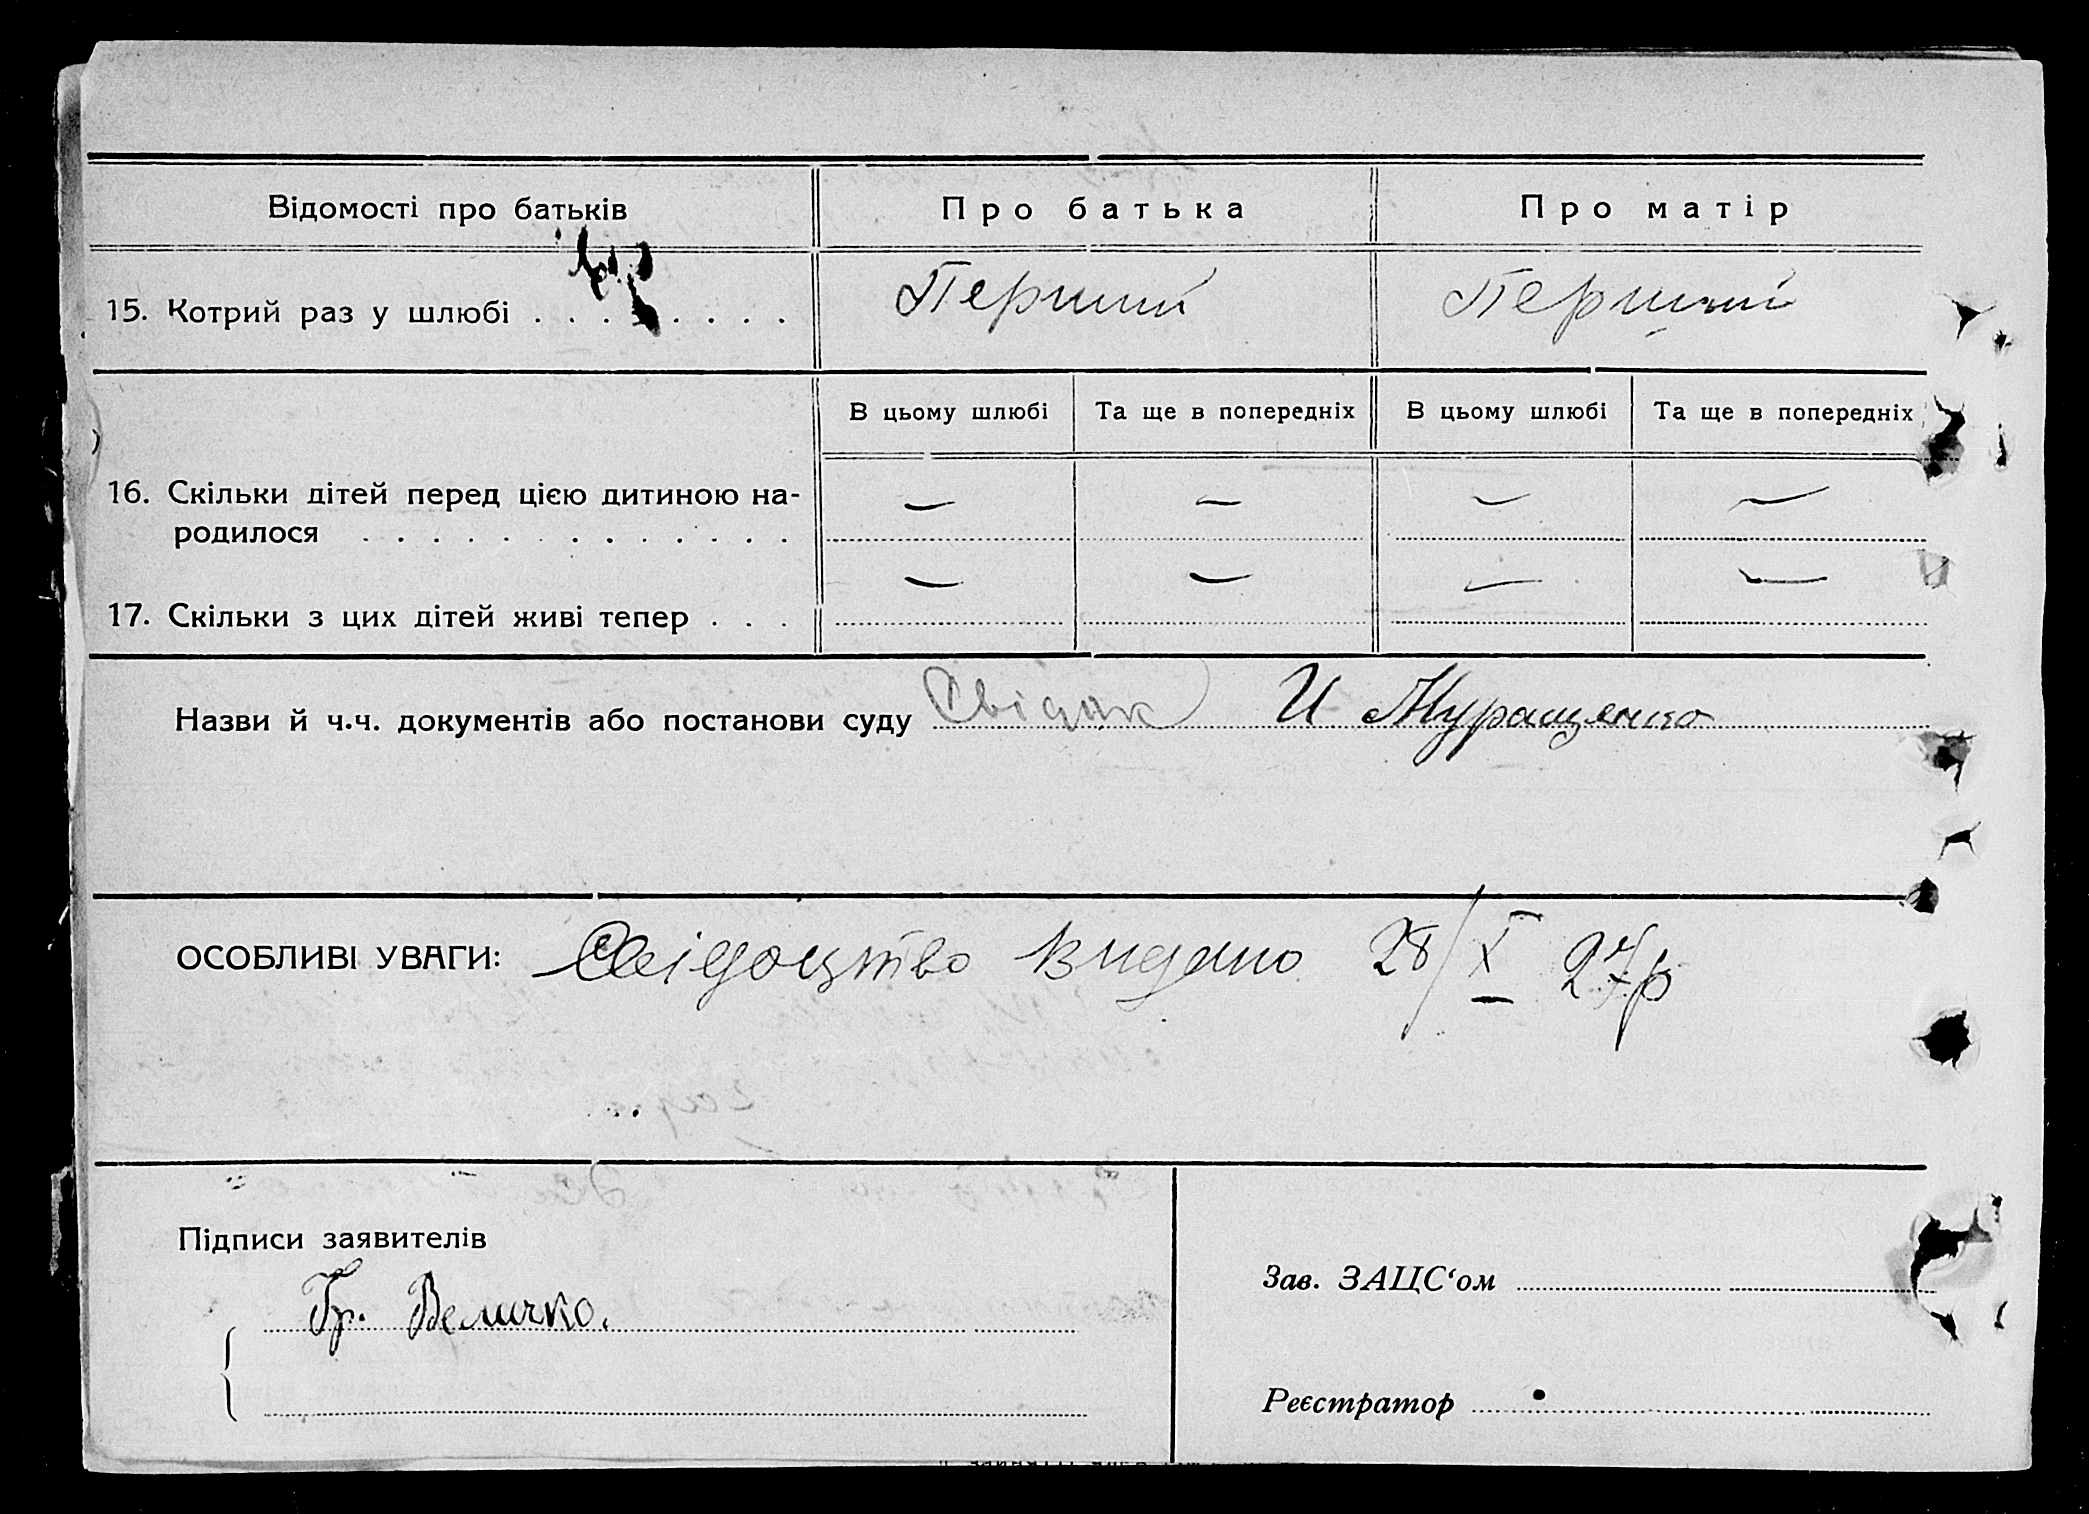 Відомості про батьків Про батька Про матір
15. Котрий раз у шлюбі . . . . . . . . Перший Перший
В цьому шлюбі Та ще в попередніх В цьому шлюбі Та ще в попередніх
16. Скільки дітей перед цією дитиною на- — — — —
родилося . . . . . . . . . . . . .
17. Скільки з цих дітей живі тепер . . . — — — —
Назви й ч.ч. документів або постанови суду Свідок И
ОСОБЛИВІ УВАГИ: Свідоцтво видано 28/X 27р
Підписи заявителів
Гр. Величко.
Зав. ЗАЦС‘ом
Реєстратор